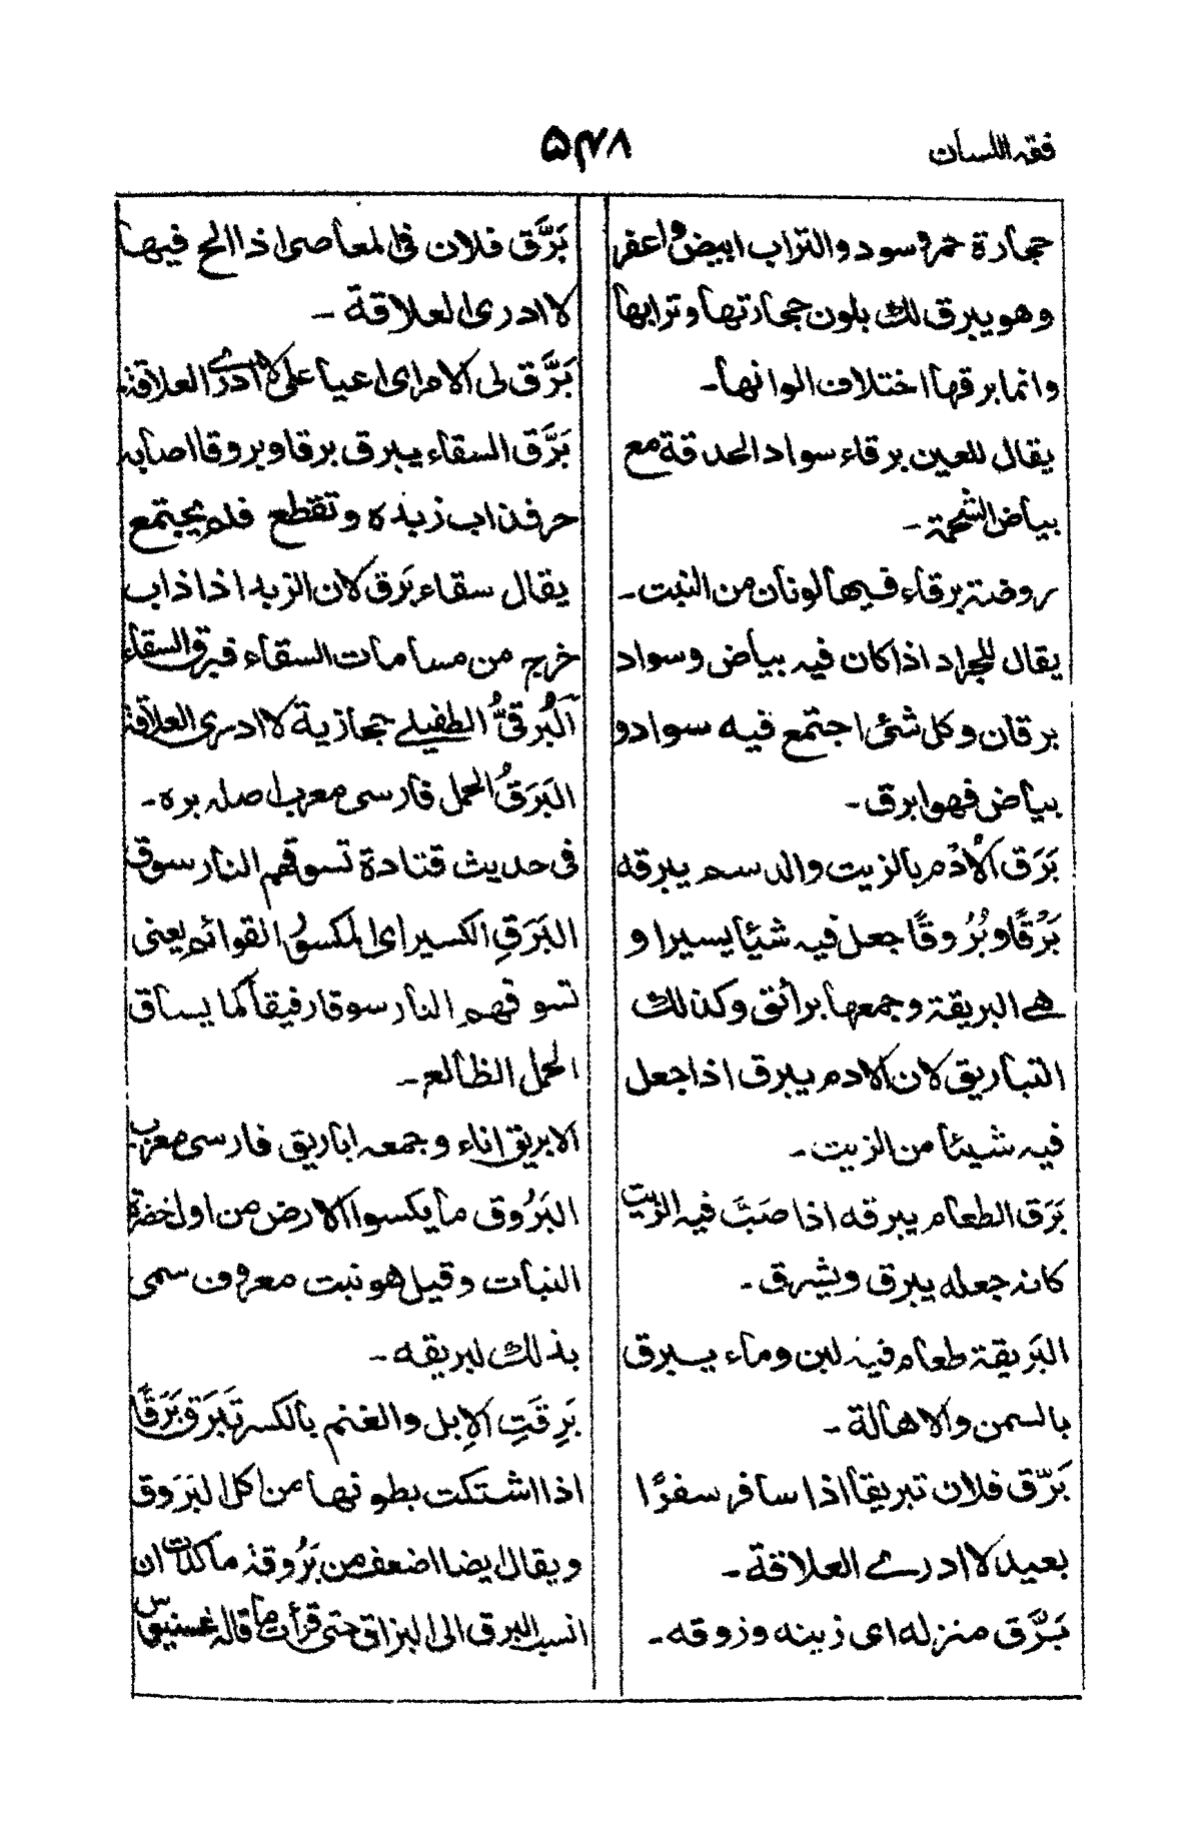 فقہ اللسان
۵۴۸
حجارة حمر وسود والتراب ابيض واعفر
وهو يبرق لك بلون حجارتها وترابها
وانما برقها اختلاف الوانها۔
يقال للعين برقاء سواد الحدقة مع
بياض الشحمة۔
روضة برقاء فيها لونان من النبت۔
يقال للجراد اذا كان فيه بياض وسواد
برقان وكل شئ اجتمع فيه سواد و
بياض فهو ابرق۔
بَرَق الأُدْم بالزيت والدسم يبرقه
بَرْقًا وبُرُوقًا جعل فيه شيئا يسيرا و
هے البريقة وجمعها برائق وكذلك
التباريق لان الادم يبرق اذا جعل
فيه شيئا من الزيت۔
بَرَق الطعام يبرقه اذا صَبَّ فيه الزيت
كانه جعله يبرق ويشرق۔
البَريقة طعام فيه لبن وماء يبرق
بالسمن والاهالة۔
بَرّق فلان تبريقا اذا سافر سفرًا
بعيدا لا ادرے العلاقة۔
بَرَّق منزله اى زينه وزوقه۔
بَرَّق فلان فى المعاصى اذا الح فيها
لا ادرى العلاقة۔
بَرَّق لى الامر اى اعيا على لا ادرے العلاقة
بَرَّق السقاء يبرق برقا وبروقا اصابه
حر فذاب زبده وتقطع فلم يجتمع
يقال سقاء بَرِق لان الزبد اذا ذاب
خرج من مسامات السقاء فبرق السقاء
اَلبُرقىُّ الطفيلے حجازية لا ادرى العلاقة
البَرَقُ الحمل فارسى معرب اصله بره۔
فى حديث قتادة تسوقهم النار سوق
البَرَقِ الكسير اى المكسور القوائم يعنى
تسوقهم النار سوقا رفيقا كما يساق
الحمل الظالع۔
الابريق اناء وجمعه اباريق فارسى معرب
البَرُوق ما يكسوا الارض من اول خضرة
النبات وقيل هو نبت معروف سمى
بذلك لبريقه۔
بَرِقَتِ الاِبل والغنم بالكسر تَبرَق بَرَقًا
اذا اشتكت بطونها من اكل البَروَق
ويقال ايضا اضعف من بَرُوقة ما كدت ان
انسب البرق الى البزاق حتى قرأت ما قاله